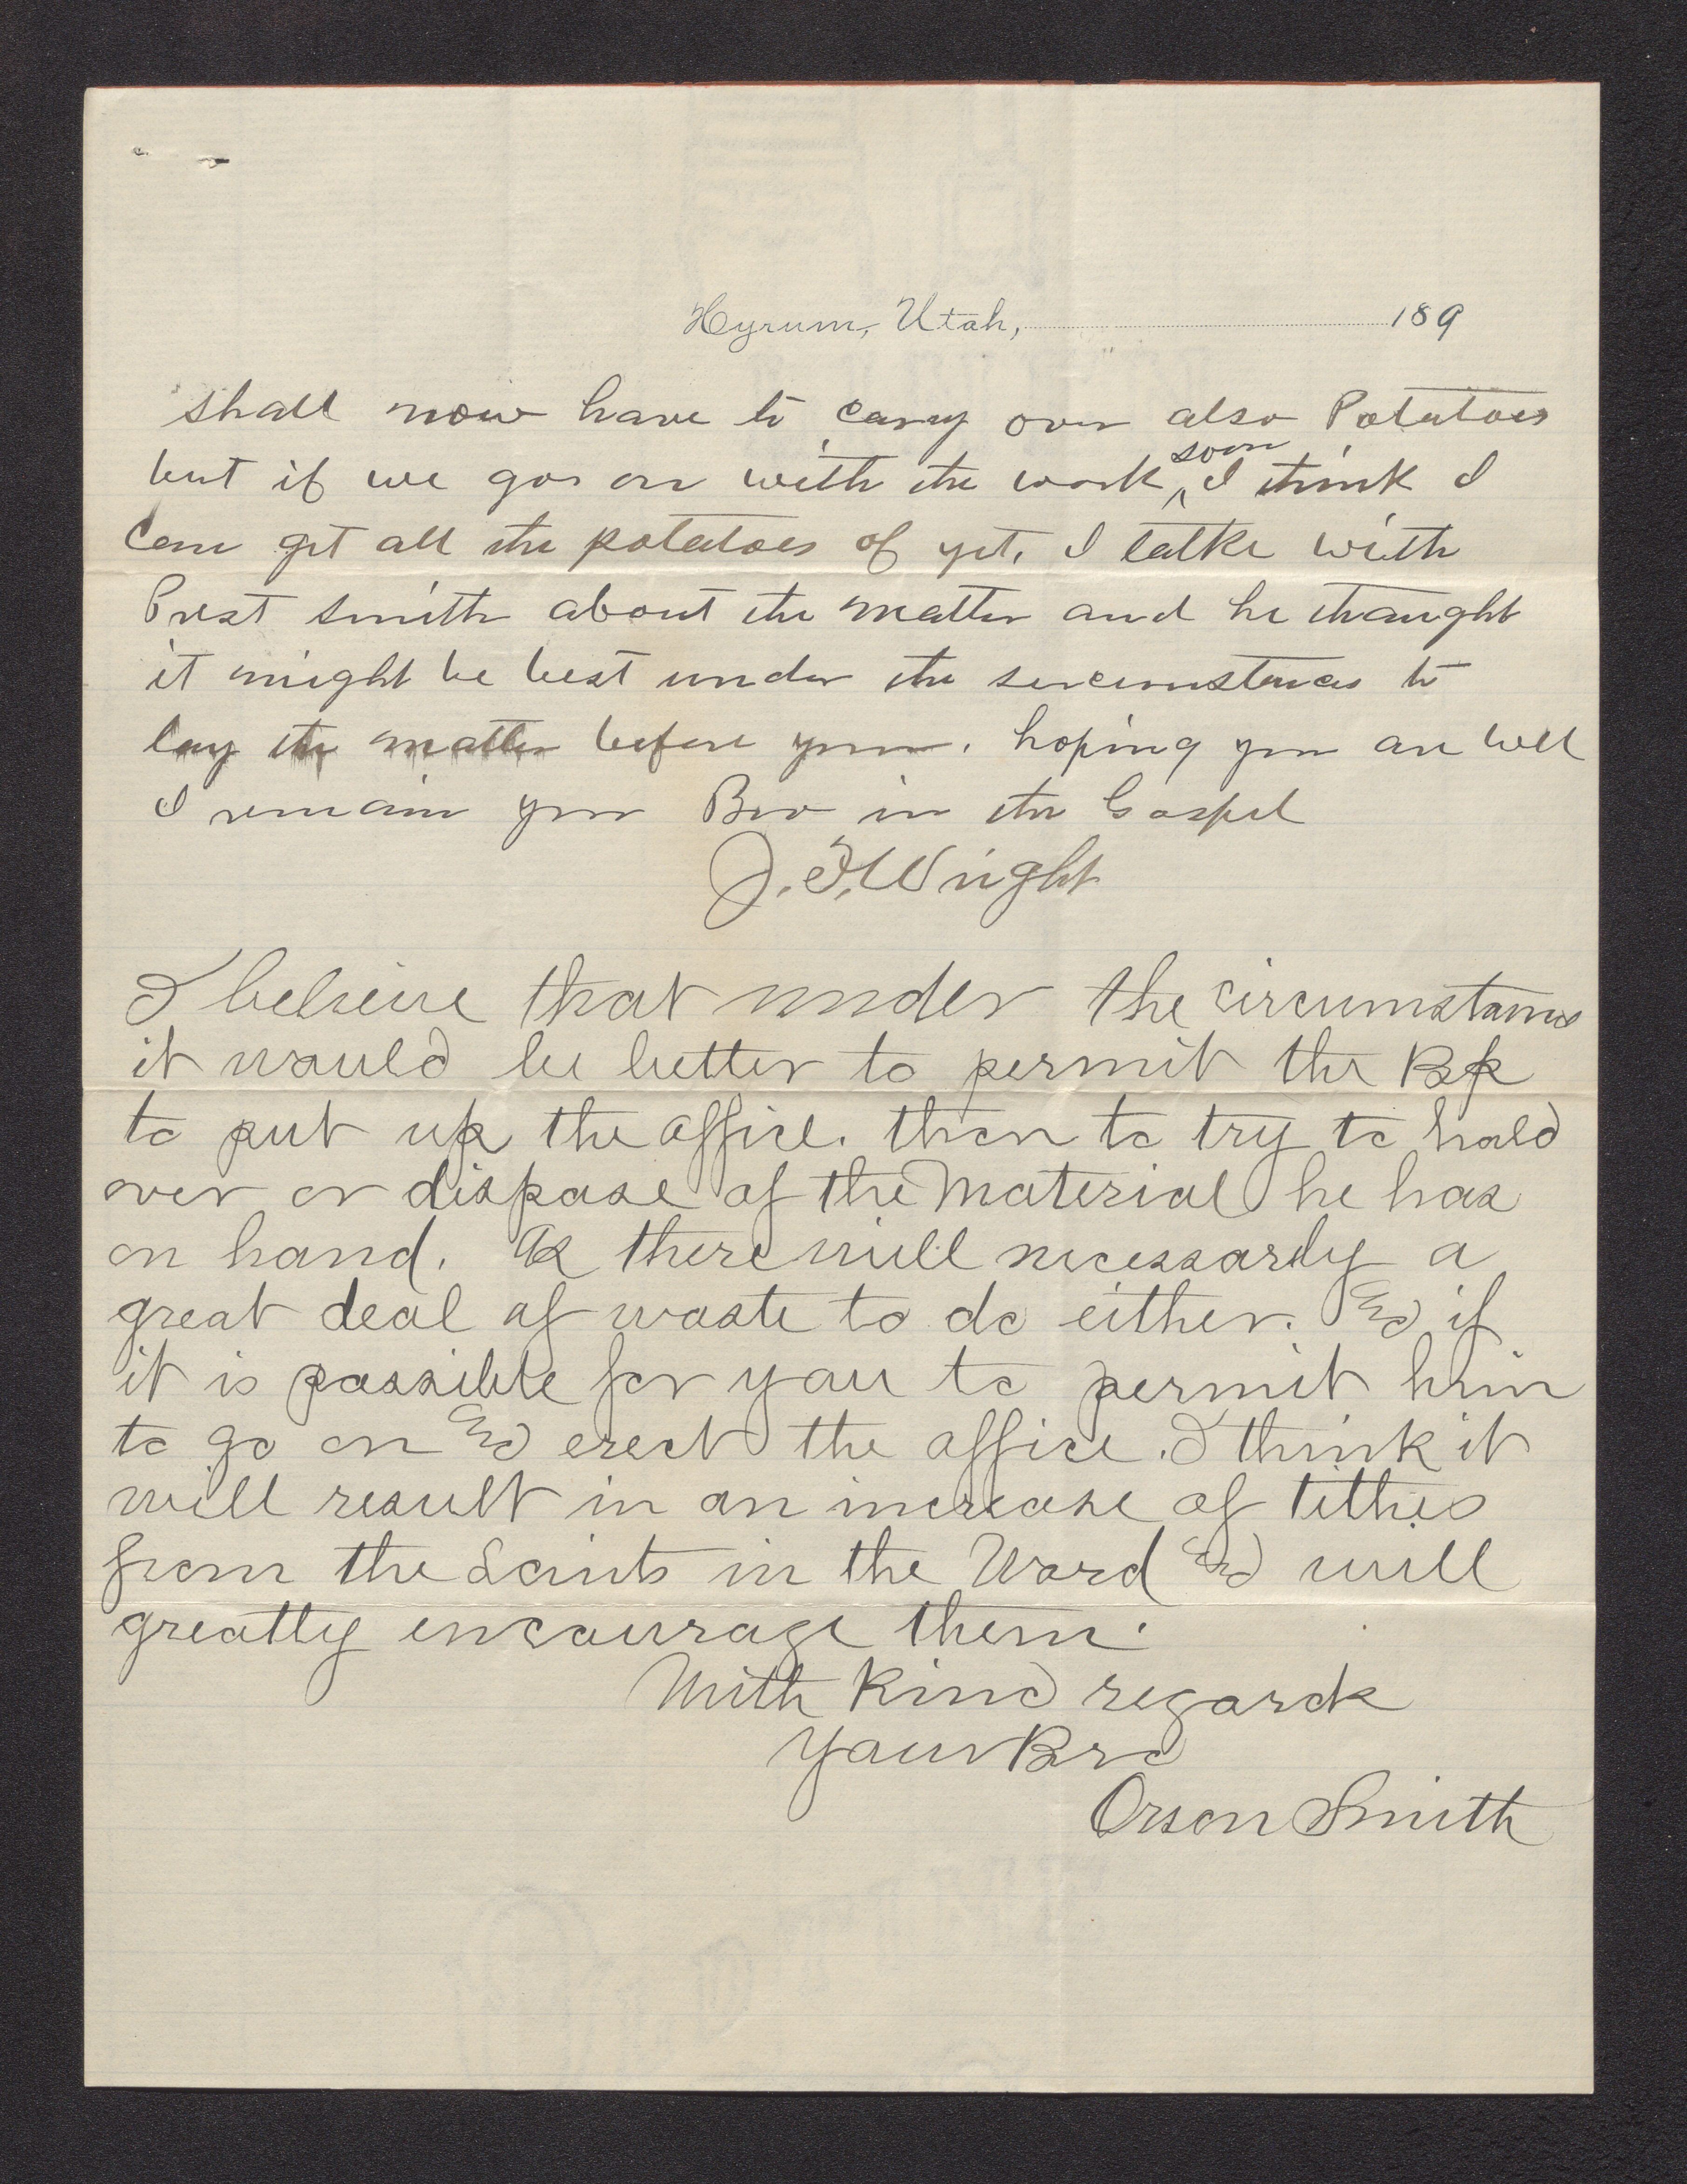 Hyrum, Utah, 189
shall now have to carry over also Potatoes
but if we gos on with the work soon I think I
can get all the potatoes of yet. I talke with
Prest Smith about the matter and he thaught
it might be best under the sircumstances to
lay the matter before you. hoping you are well
I remain your Bro in the Gospel
J. F. Wright
I believe that under the circumstances
it would be better to permit the Bp
to put up the office. then to try to hold
over or dispose of the Material he has
on hand. As there will necessarly a
great deal of waste to do either. And if
it is possible for you to permit him
to go on and erect the office. I think it
will result in an increase of tithes
from the Saints in the Ward and will
greatly encourage them.
With Kind regards
Your Bro
Orson Smith